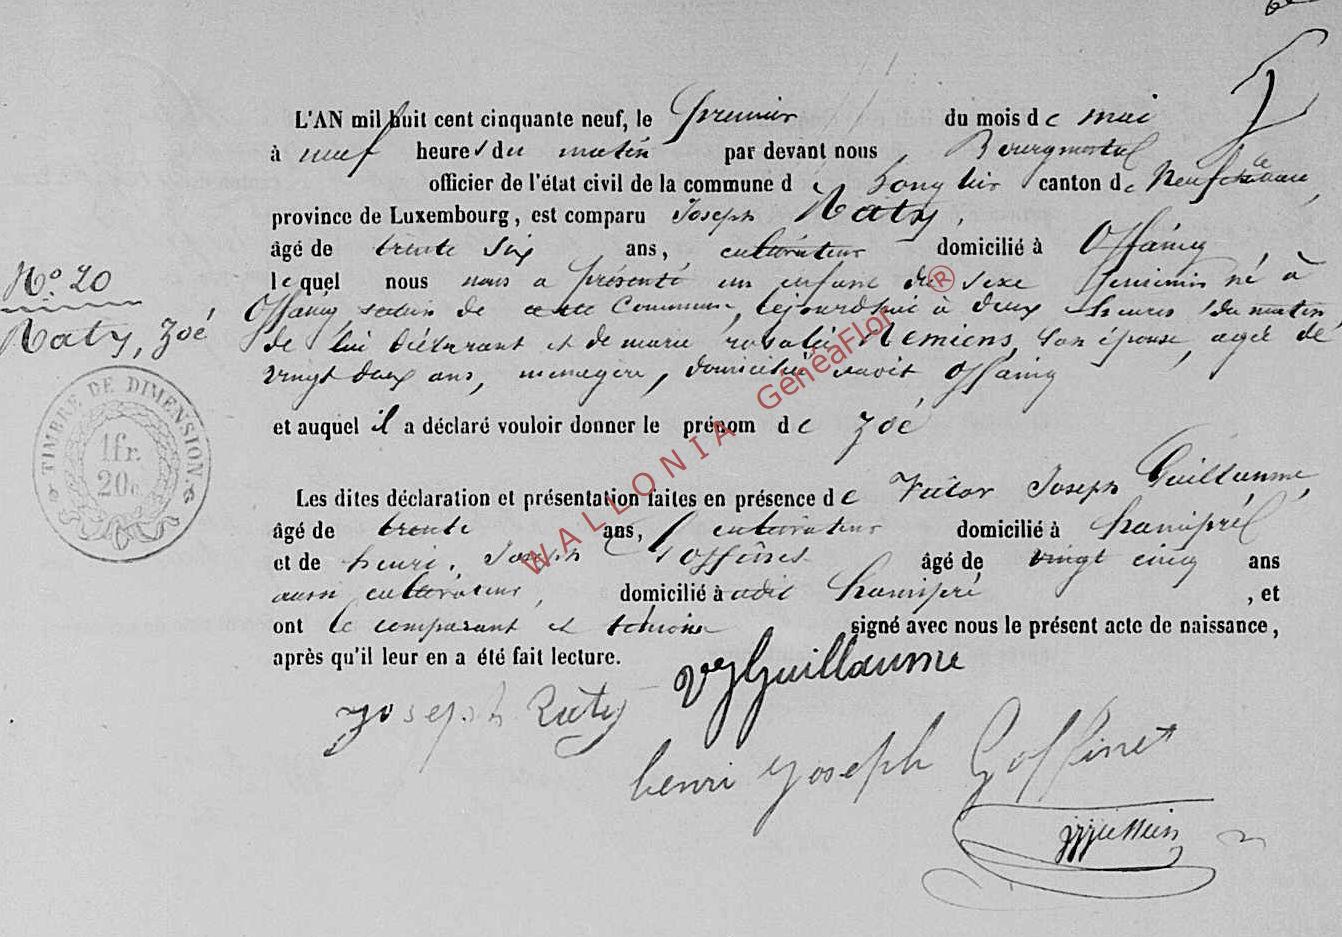 L'AN mil huit cent cinquante neuf, le premier du mois de mai
à neuf heures du matin par devant nous Bourgmestre
officier de l'état civil de la commune de Longlier canton de Neufchâteau,
province de Luxembourg, est comparu Joseph Raty,
âgé de trente six ans, cultivateur domicilié à Offaing
lequel nous nous a présenté un enfant du sexe feminin né à
Offaing section de cette commune, cejourdhui à deux heures du matin
de lui déclarant et de marie rosalie, son épouse, agée de
vingt deux ans, menagère, domiciliée audit Offaing
et auquel il a déclaré vouloir donner le prénom de Zoé
Les dites déclaration et présentation faites en présence de Victor Joseph Guillaume,
âgé de trente ans, cultivateur domicilié à hamipré
et de henri Joseph Goffinet âgé de vingt cinq ans
aussi cultivateur, domicilié à adit hamipré, et
ont le comparant et temoins signé avec nous le présent acte de naissance,
après qu'il leur en a été fait lecture.
N° 20
Raty, Zoé
TIMBRE DE DIMENSION
1fr.
20c
VJGuillaume
Joseph Raty
henri joseph Goffinet
WALLONIA GeneaFlor ®